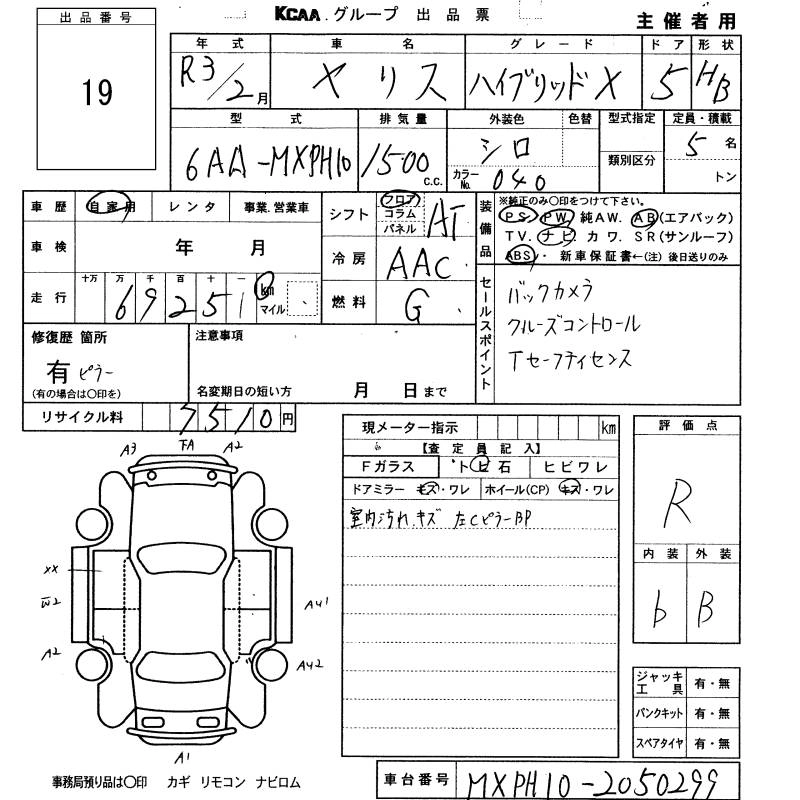 KCAA.グループ 出品票
主催者用
出品番号
19
年式 車名 グレード ドア 形状
R3/2月 ヤリス ハイブリッドX 5 HB
型式 排気量 外装色 色替 型式指定 定員・積載
6AA-MXPH10 1500 c.c. シロ 類別区分 5名
カラーNo. 040 トン
車歴 自家用 レンタ 事業.営業車
車検 年 月
走行 十万 万 千 百 十 一
69251 km マイル
シフト フロア コラム パネル AT
冷房 AAC
燃料 G
装備品 ※純正のみ〇印をつけて下さい。
PS PW 純AW. AB(エアバック)
TV. ナビ カワ. SR(サンルーフ)
ABS 新車保証書←(注)後日送りのみ
セールスポイント
バックカメラ
クルーズコントロール
Tセーフティセンス
修復歴 箇所
有 ピラー
(有の場合は〇印を)
注意事項
名変期日の短い方 月 日まで
リサイクル料 7510円
現メーター指示 km
【査定員記入】
Fガラス トビ石 ヒビワレ
ドアミラー キズ・ワレ ホイール(CP) キズ・ワレ
室内汚れ.キズ 左CピラーBP
評価点
R
内装 外装
b B
ジャッキ工具 有・無
パンクキット 有・無
スペアタイヤ 有・無
A3 FA A2
XX
W2
AU1
A2
AU2
A1
事務局預り品は〇印 カギ リモコン ナビロム
車台番号 MXPH10-2050299